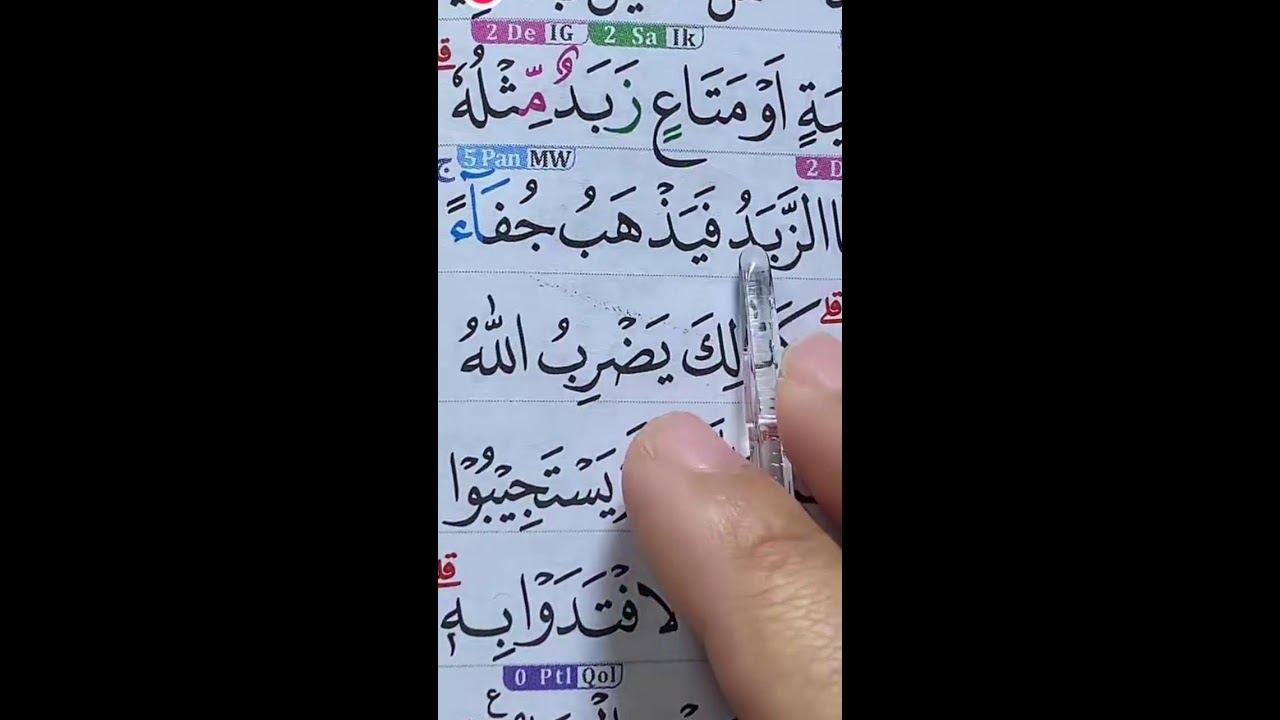 2 De IG 2 Sa Ik
اَوْ مَتَاعٍ زَبَدٌ مِّثْلُهٗ
5 Pan MW 2 D
الزَّبَدُ فَيَذْهَبُ جُفَاۤءً
قلى
يَضْرِبُ اللّٰهُ
يَسْتَجِيْبُوْا
لَافْتَدَوْا بِهٖ
0 Ptl Qol